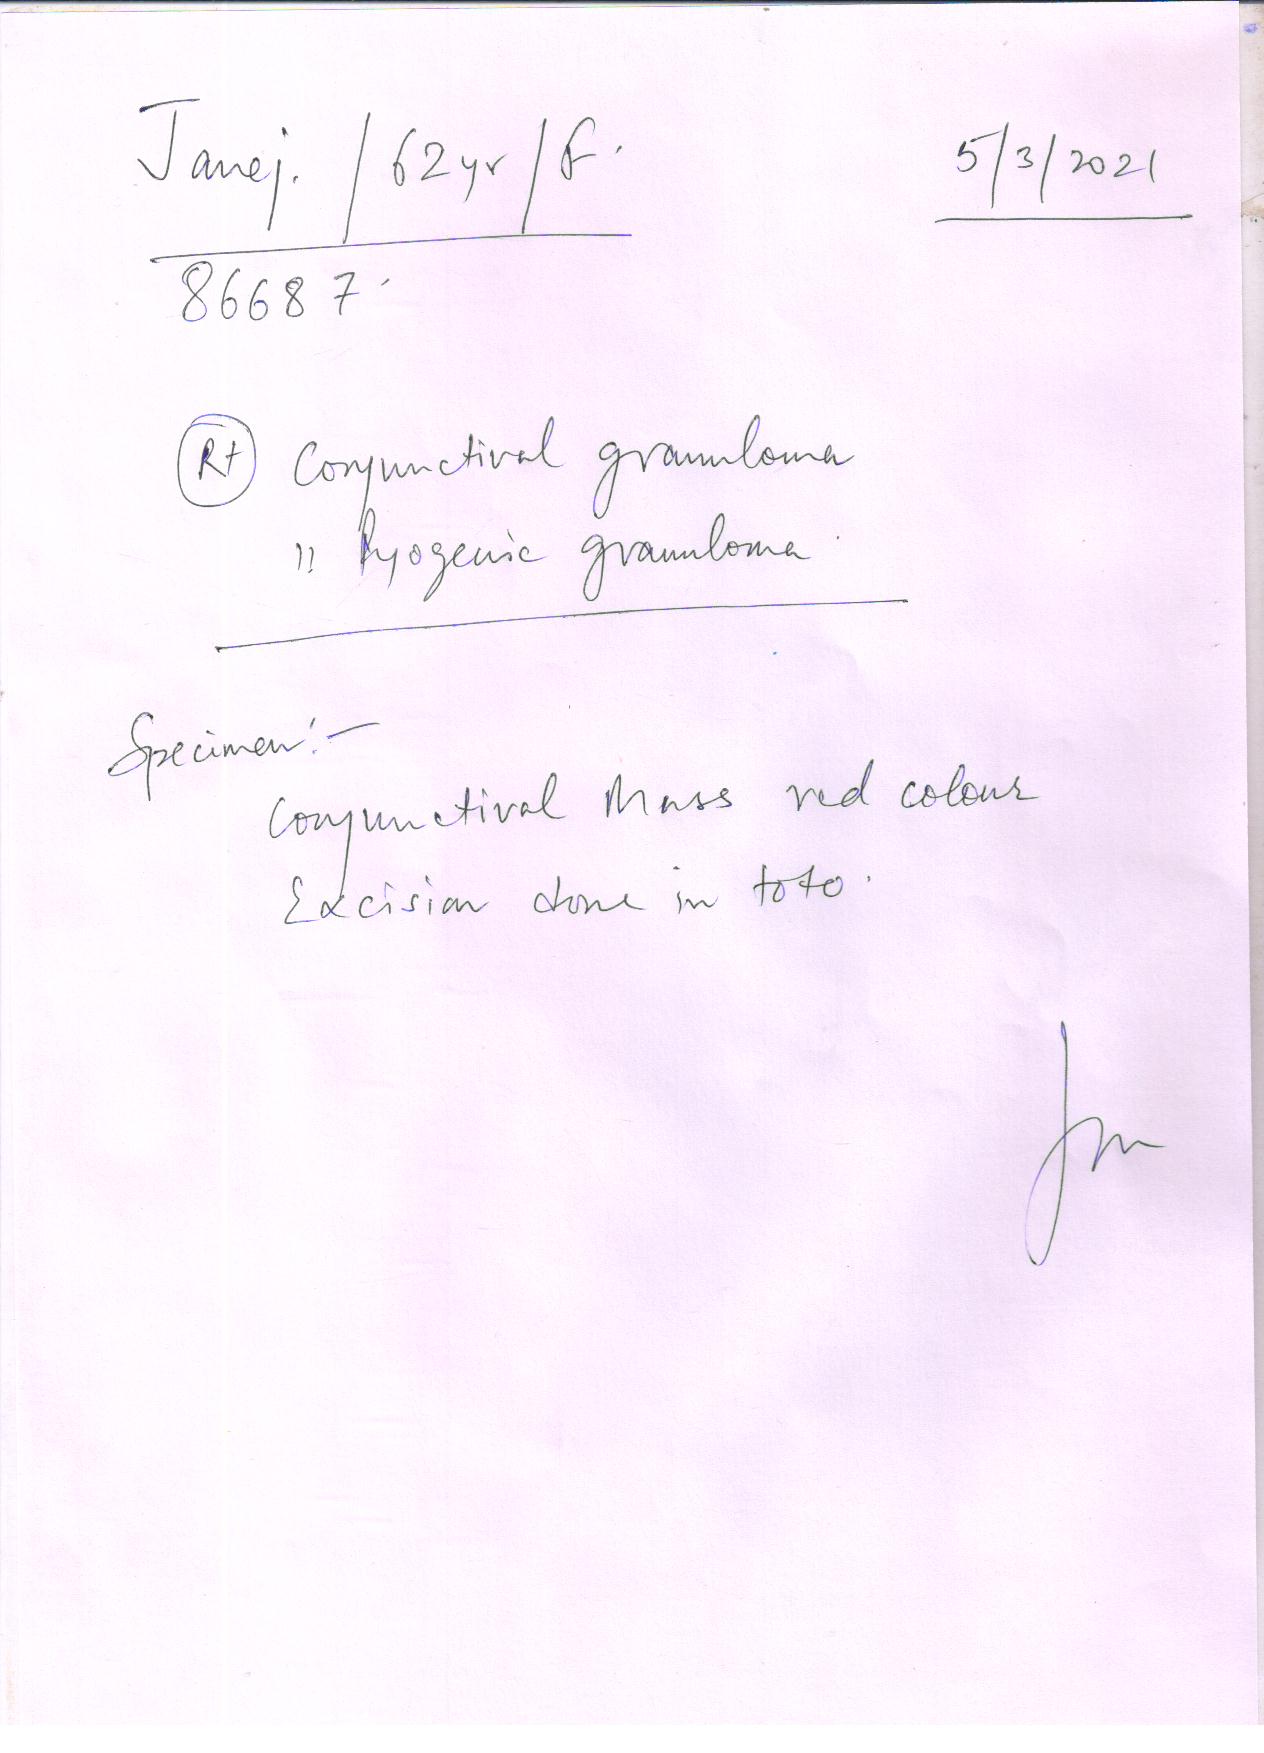 Janej. / 62 yr / F. 5/3/2021
86687.
Rt Conjunctival granuloma
!! Pyogenic granuloma
Specimen:-
Conjunctival Mass red colour
Excision done in toto.